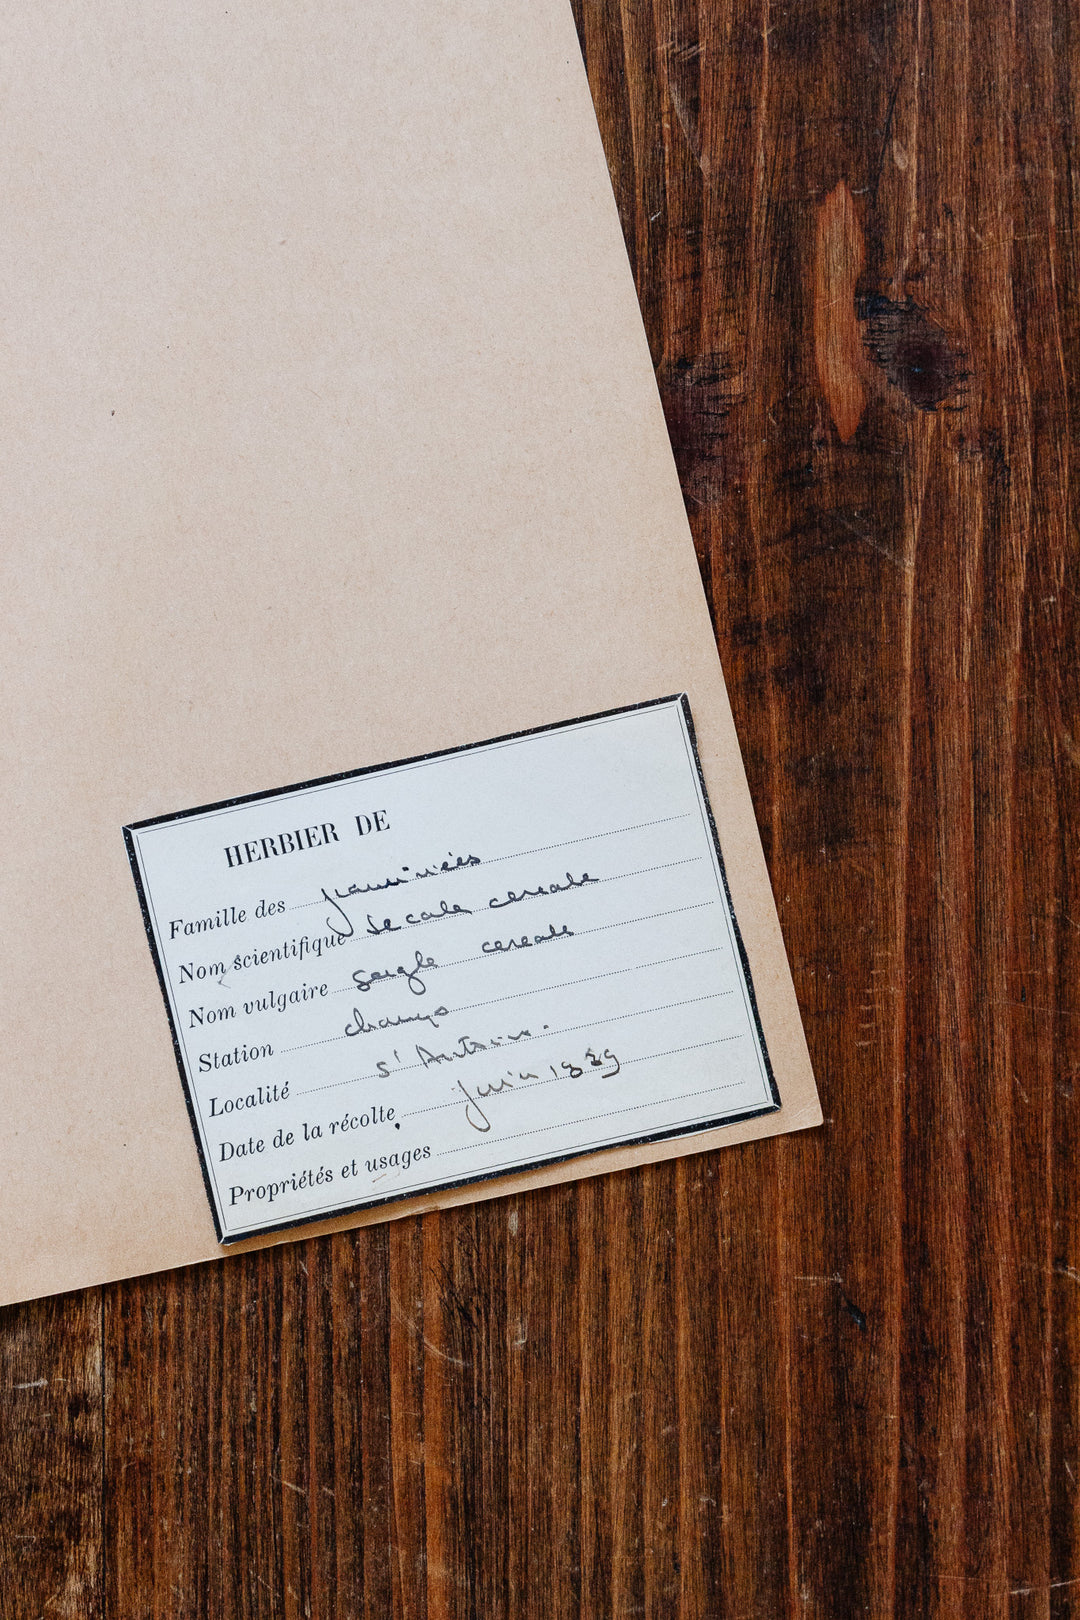 HERBIER DE
Famille des graminées
Nom scientifique Secale cereale
Nom vulgaire seigle cereale
Station champs
Localité S' Antoine.
Date de la récolte, Juin
Propriétés et usages